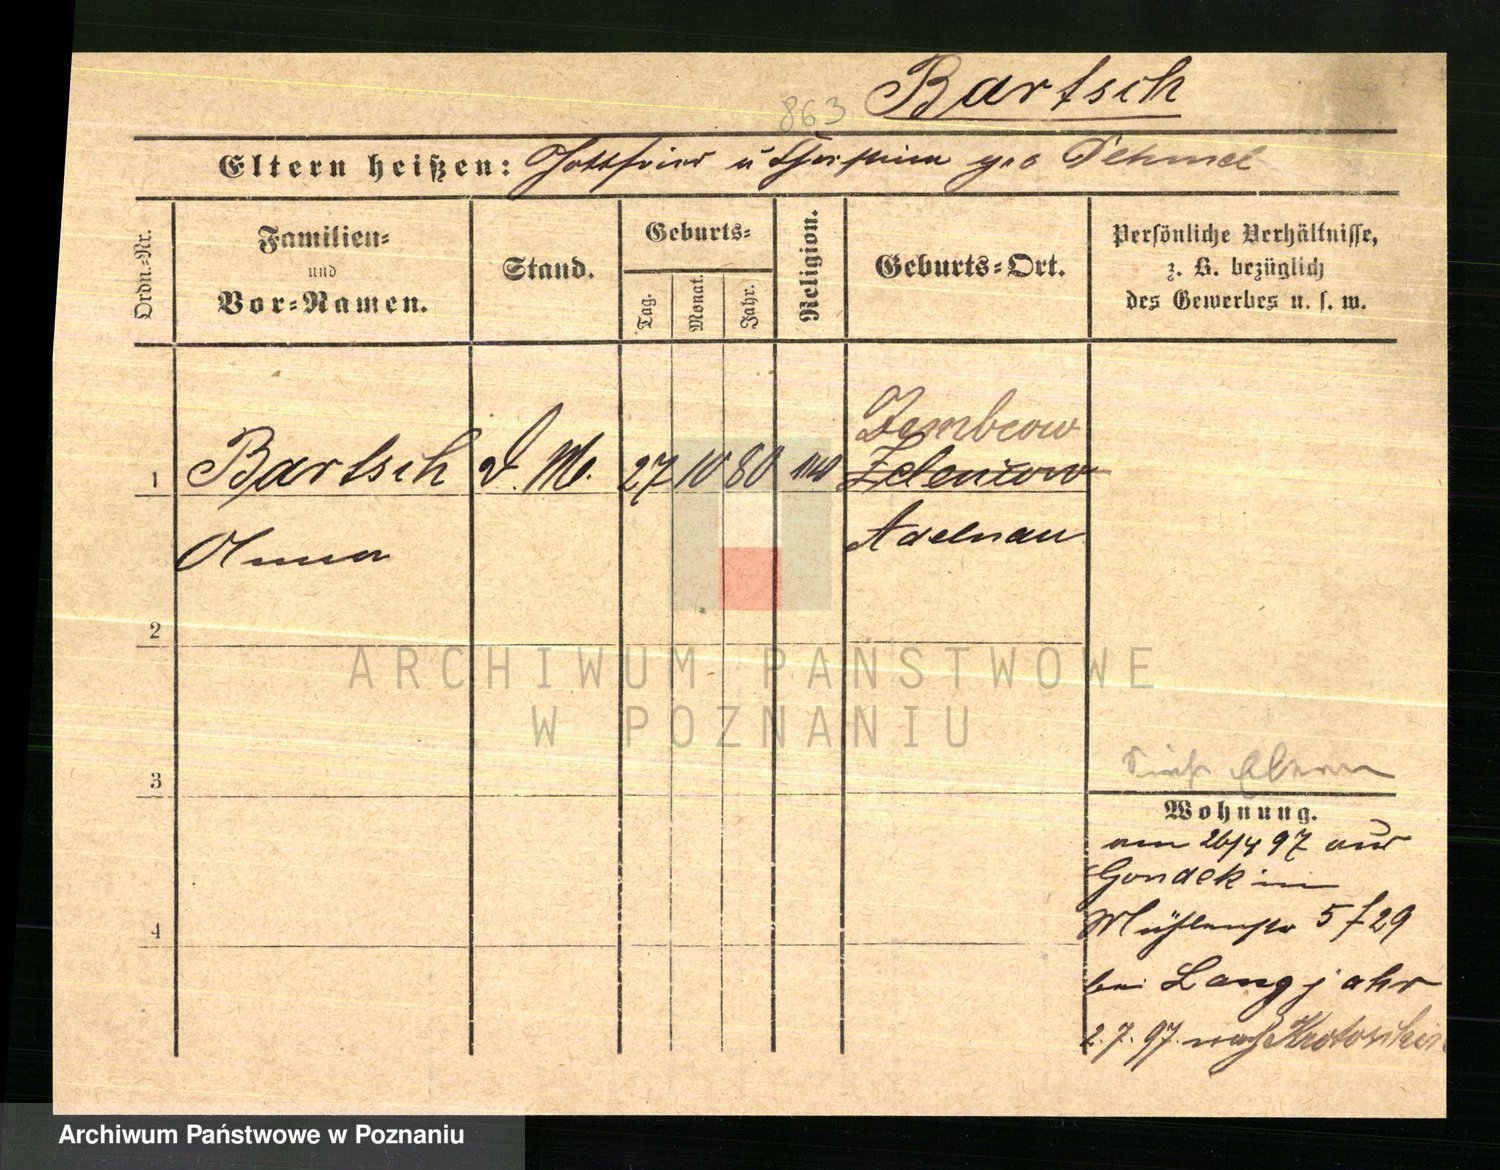 863 Bartsch
Eltern heißen: Gottfried u Christina geb Dehmel
Ordn.-Nr.
Familien-
und
Vor-Namen.
Stand.
Geburts-
Tag. Monat. Jahr.
Religion.
Geburts-Ort.
Persönliche Verhältnisse,
z. B. bezüglich
des Gewerbes u. s. w.
1 Bartsch D. M. 27 10 80
Anna
Adelnau
2
3
4
Wohnung.
am 26/4 97 aus
Gondek in
Mühlenstr 5 f 29
bei Langjahr
2.7.97. nach Krotoschin
ARCHIWUM PAŃSTWOWE
W POZNANIU
Archiwum Państwowe w Poznaniu